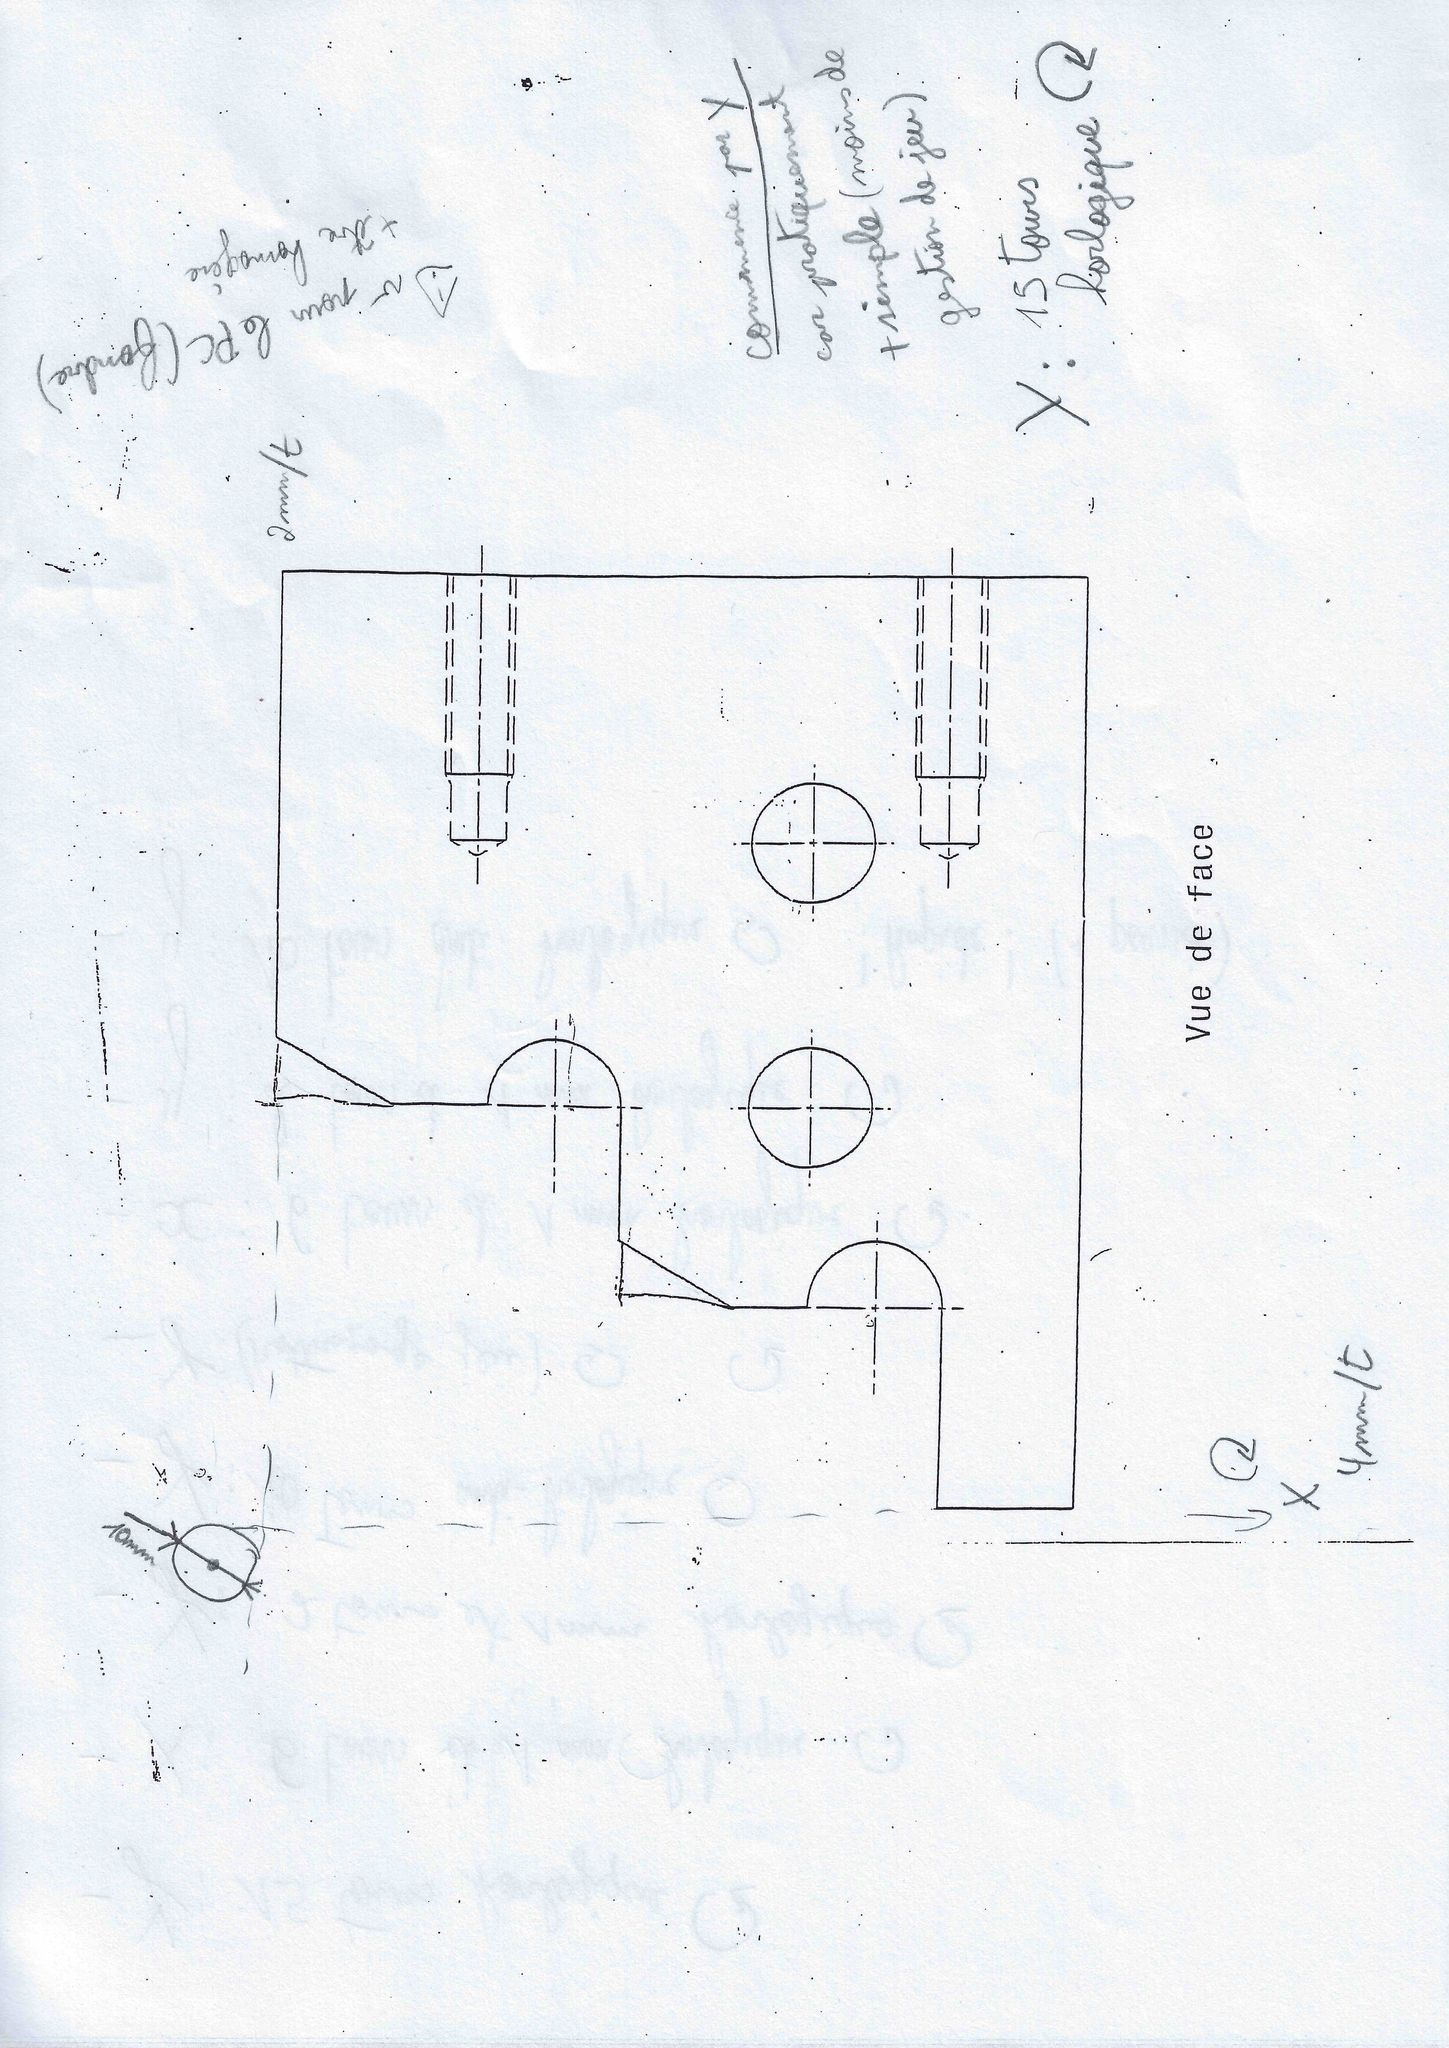 10mm
2mm/t
⚠ N pour le PC (
+ Xtre homogène
commence par Y
car pratiquement
+ simple (moins de
gestion de jeu)
Y : 15 tours
horlogique
Vue de face
X
4mm/t